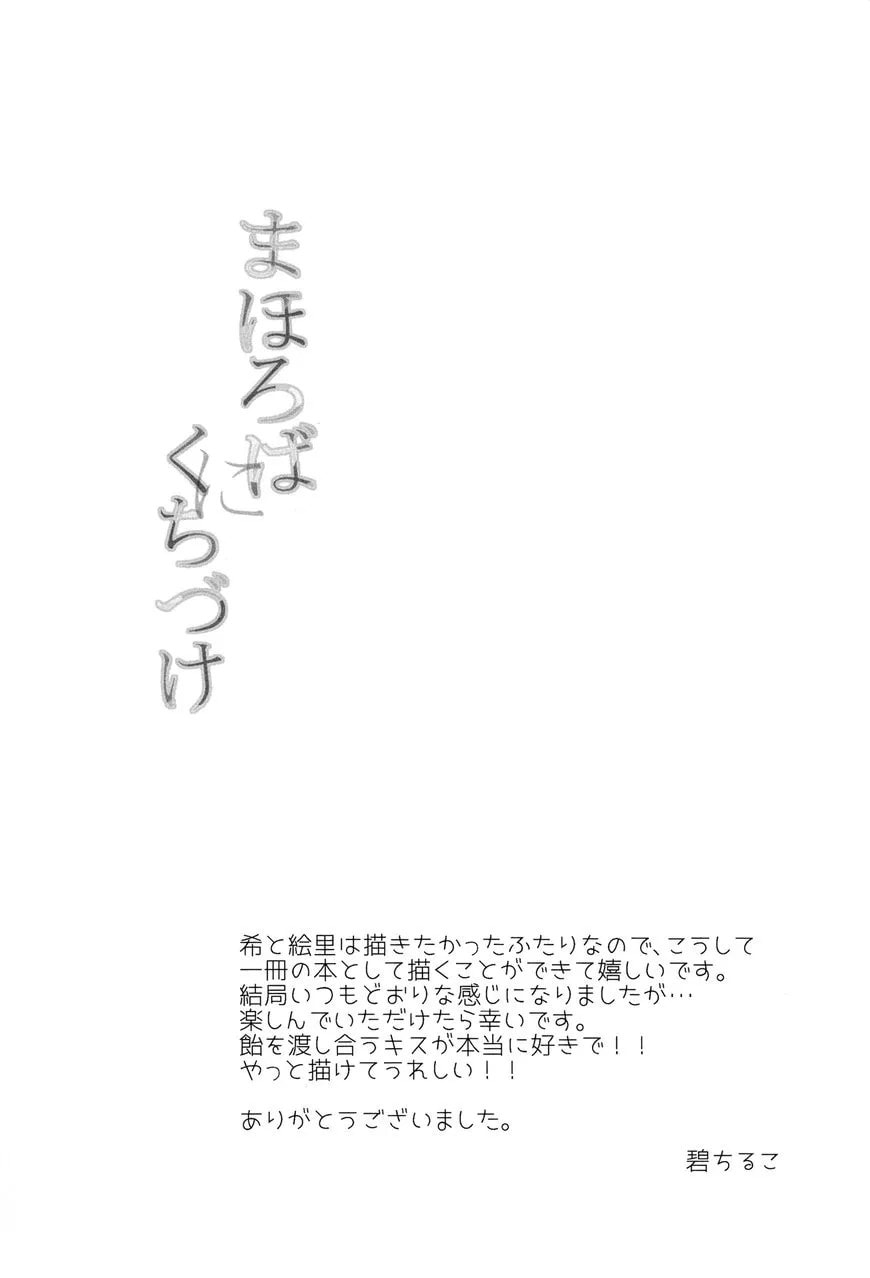 まほろば
くちづけ
希と絵里は描きたかったふたりなので、こうして
一冊の本として描くことができて嬉しいです。
結局いつもどおりな感じになりましたが…
楽しんでいただけたら幸いです。
飴を渡し合うキスが本当に好きで!!
やっと描けてうれしい!!
ありがとうございました。
碧ちるこ